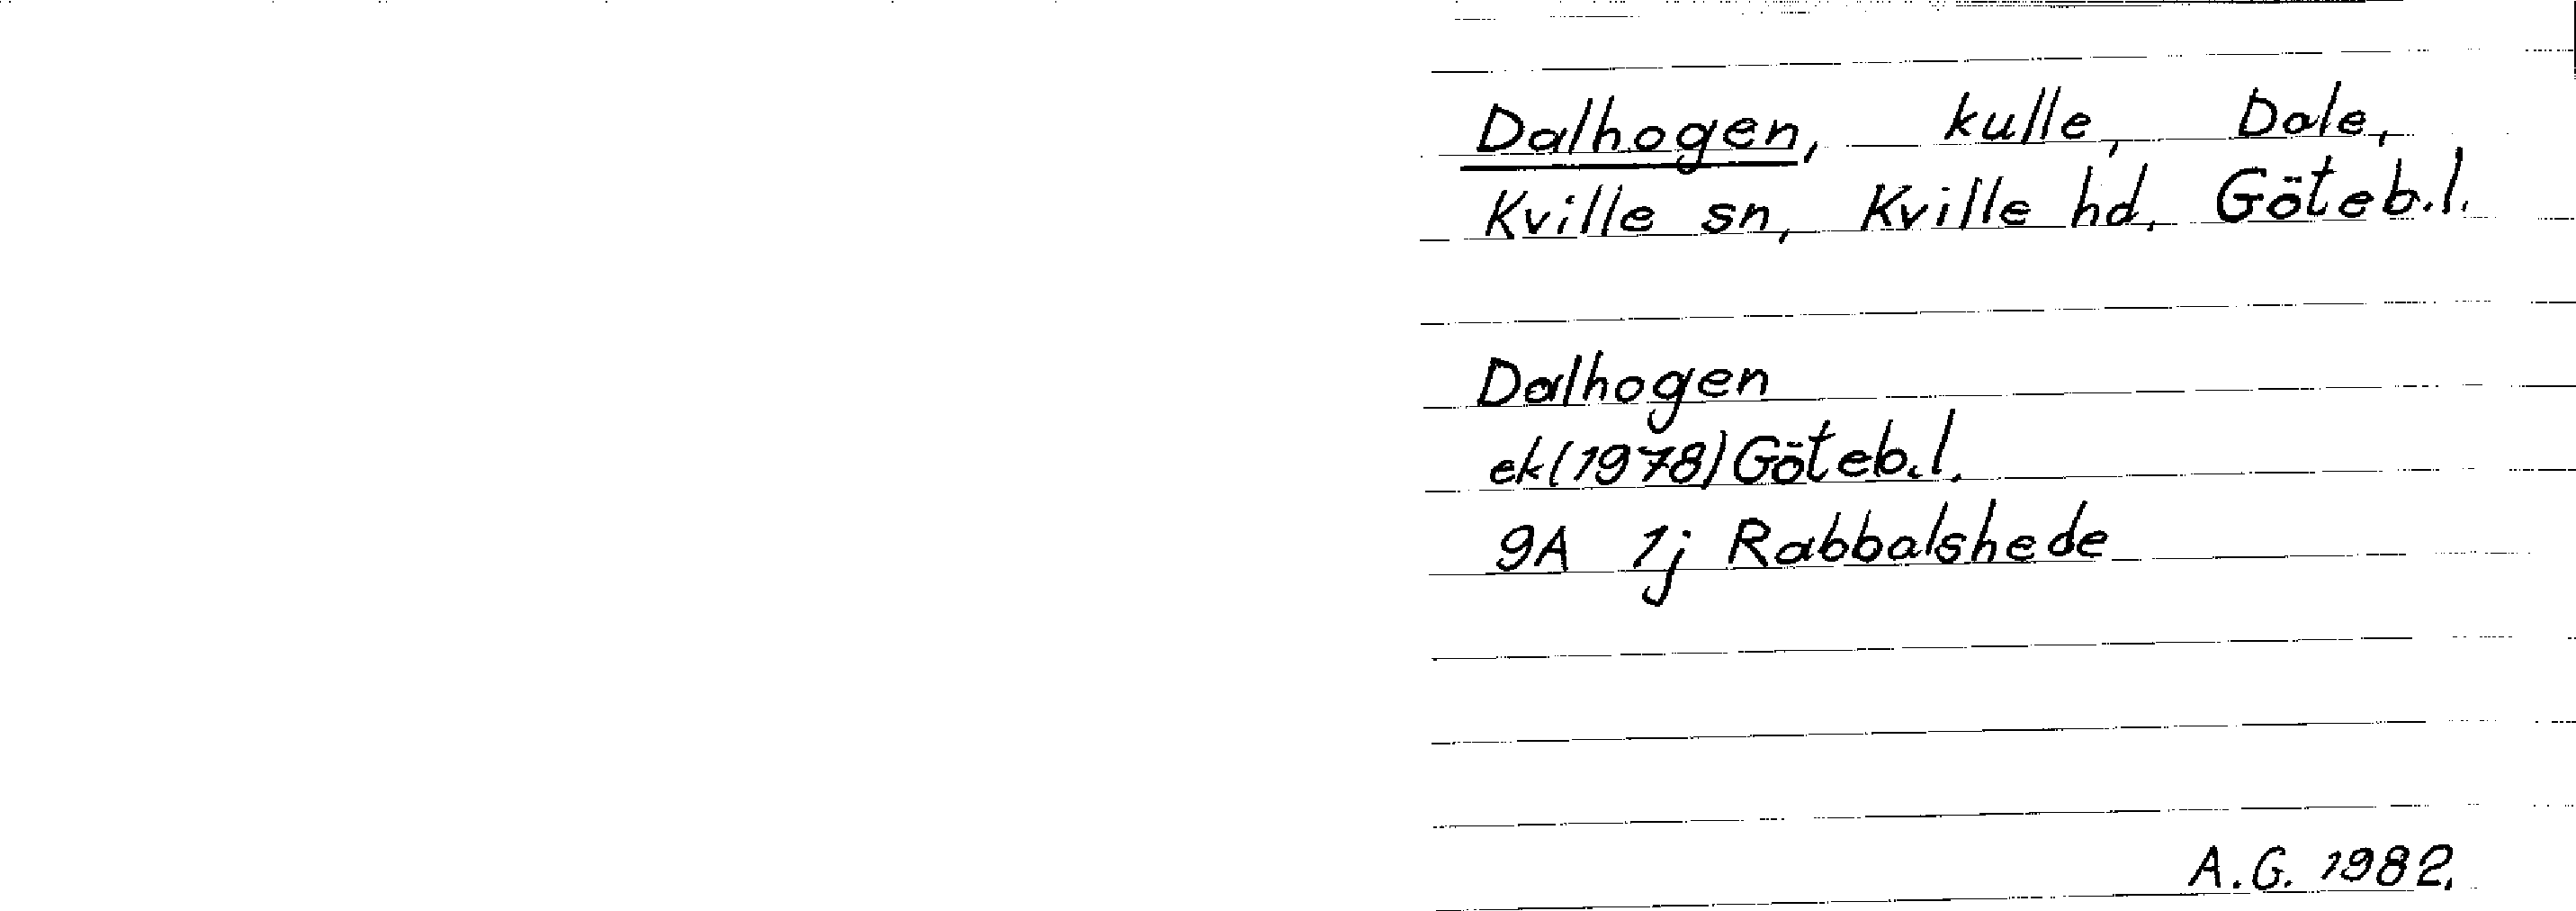 Dalhogen, kulle, Dale,
Kville sn, Kville hd, Göteb.l.
Dalhogen
ek(1978) Göteb.l.
9A 1j Rabbalshede
A.G. 1982.